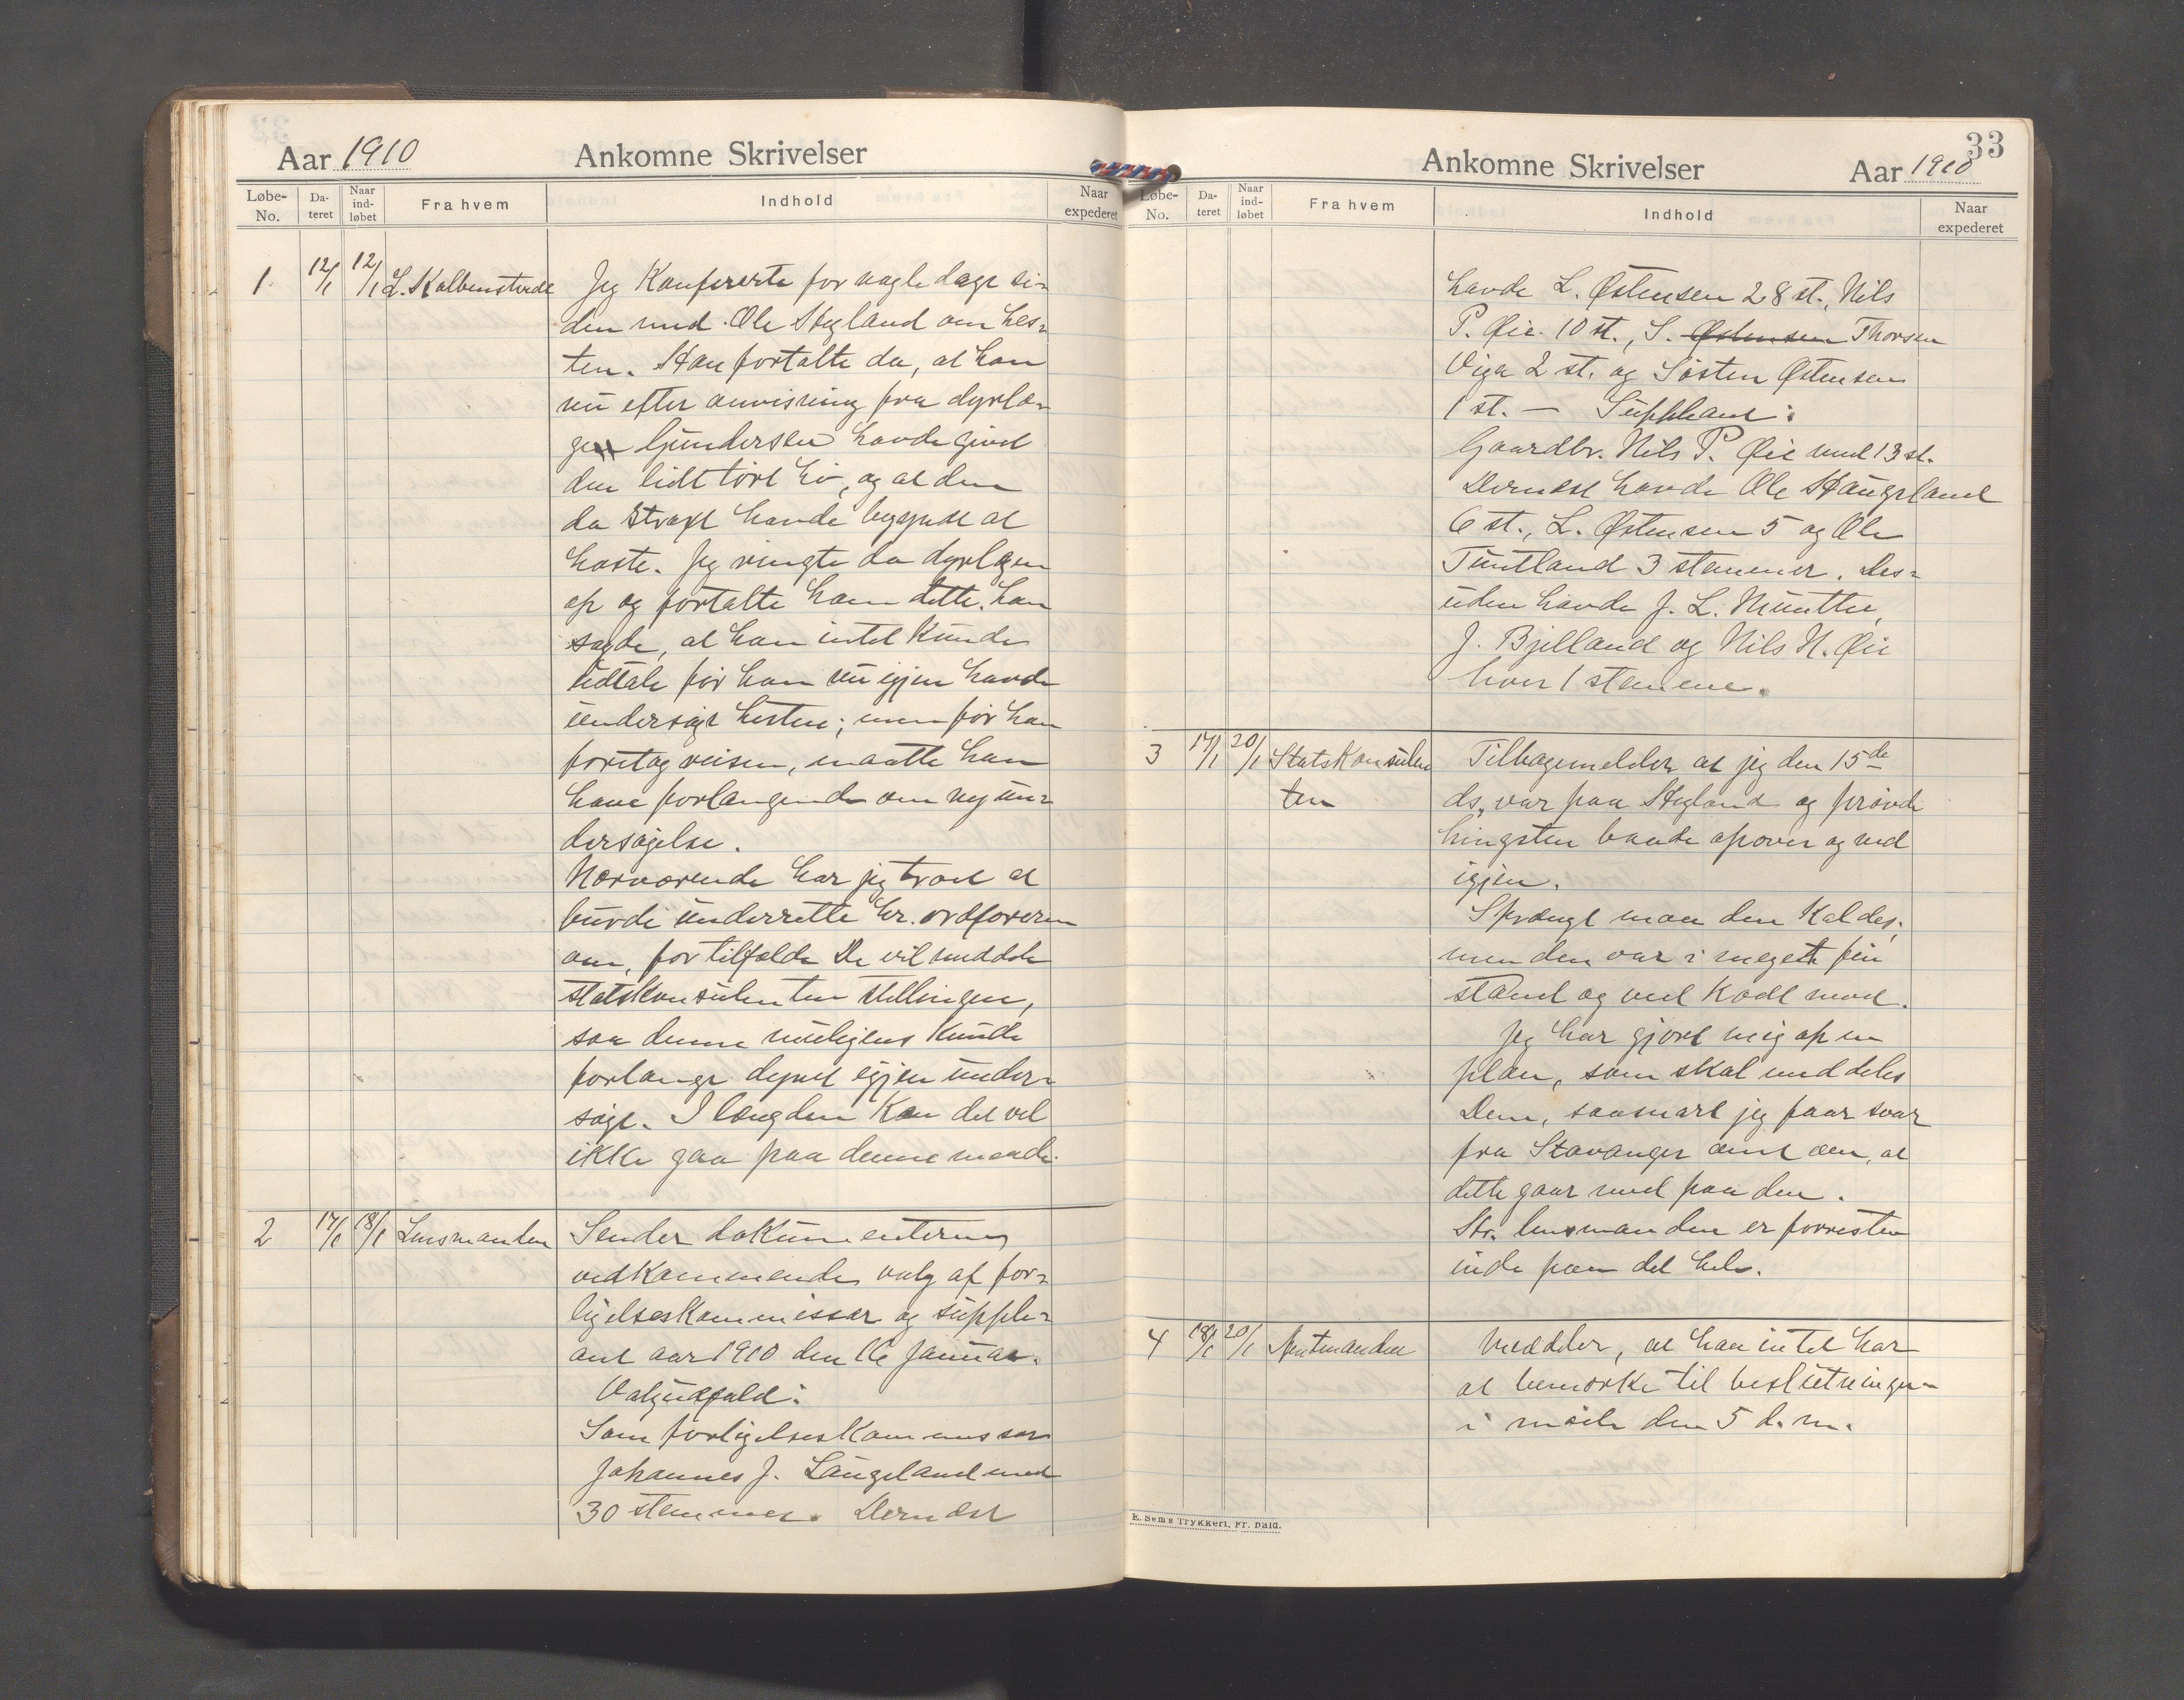 Aar 1910
Ankomne Skrivelser
Løbe-No. Dateret Naar indløbet Fra hvem Indhold Naar expederet
1. 12/1 12/1 L. Kalbenstvedt Jeg Konfererte for nogle dage si-
den med Ole Stegland om hes-
ten. Han fortalte da, at han
nu efter anvisning fra dyrlæ-
gen Gundersen havde givet
den lidt tørt hø, og at den
da straxt havde begyndt at
hoste. Jeg ringte da dyrlægen
op og fortalte ham dette. Han
sagde, at han intet kunde
udtale før han nu igjen havde
undersøgt hesten; men før han
foretog reisen, maatte han
have forlangende om ny un-
dersøgelse.
Nærværende har jeg troet at
burde underrette hr. ordføreren
om, for tilfælde De vil meddele
statskonsulenten stillingen,
saa denne muligens kunde
forlange dyret igjen under-
søgt. I længden kan det vel
ikke gaa paa denne maade.
2 17/1 18/1 Lensmanden Sender dokumenterne
vedkommende valg af for-
ligelseskommissær og supple-
ant aar 1910 den 16 Januar.
Valgudfald:
Som forligelseskommissær
Johannes J. Langeland med
30 stemmer. Dernæst
33
Ankomne Skrivelser
Aar 1910
Løbe-No. Dateret Naar indløbet Fra hvem Indhold Naar expederet
havde L. Østensen 28 st., Nils
P. Øie 10 st., S. Østensen Thorsen
Viga 2 st. og Søsten Østensen
1 st. — Suppleant:
Gaardbr. Nils P. Øie med 13 st.
Dernæst havde Ole Haugeland
6 st., L. Østensen 5 og Ole
Tuntland 3 stemmer. Des-
uden havde J. L. Munthe,
J. Bjelland og Nils N. Øie
hver 1 stemme.
3 17/1 20/1 Statskonsulen Tilbagemelder at jeg den 15de
ten ds. var paa Stegland og prøvde
hingsten baade opover og ned
igjen.
Sprængt maa den kaldes,
men den var i meget fin
stand og ved godt mod.
Jeg har gjort mig op en
plan, som skal meddeles
Dem, saasnart jeg faar svar
fra Stavanger amt om, at
dette gaar med paa den.
Hr. lensmanden er forresten
inde paa det hele.
4 18/1 20/1 Amtmanden Meddeler, at han intet har
at bemærke til beslutningen
i møde den 5 d. m.
E. Sem's Trykkeri, Fr. hald.